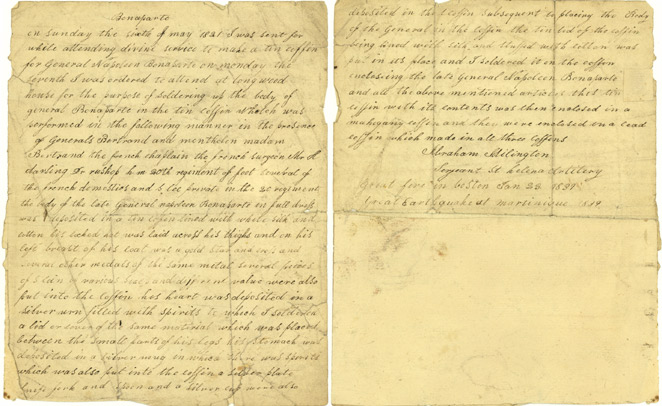 Bonaparte
on sunday the sixth of may 1821 I was sent for
while attending divine service to make a tin coffin
for General Napoleon Bonaparte on monday the
seventh I was ordered to attend at longwood
house for the purpose of soldering up the body of
general Bonaparte in the tin coffin which was
performed in the following manner in the presence
of Generals Bertrand and montholon madam
Bertrand the french chaplain the french surgeon Mr
Dr 20th regiment of foot several of
the french domestics and private in the 20 regiment
the body of the late General napoleon Bonaparte in full dress
was deposited in a tin coffin lined with white silk and
cotton his cocked hat was laid across his thighs and on his
left breast of his coat was a gold star and cross and
several other medals of the same metal several pieces
of coin of various sizes and different value were also
put into the coffin his heart was deposited in a
silver urn filled with spirits to which I soldered
a lid or cover of the same material which was placed
between the small parts of his legs his stomach was
deposited in a silver mug in which there was spirits
which was also put into the coffin a silver plate
knife fork and spoon and a silver cup were also
deposited in the coffin subsequent to placing the Body
of the General in the coffin the tin lid of the coffin
being lined with silk and stuffed with cotton was
put in its place and I soldered it on the coffin
enclosing the late General Napoleon Bonaparte
and all the above mentioned articles this tin
coffin with its contents was then enclosed in a
mahogany coffin and they were enclosed in a lead
coffin which made in all three coffins
Abraham Millington
Sergeant St helena artillery
Great fire in boston Jan
Great Earthquake at martinique